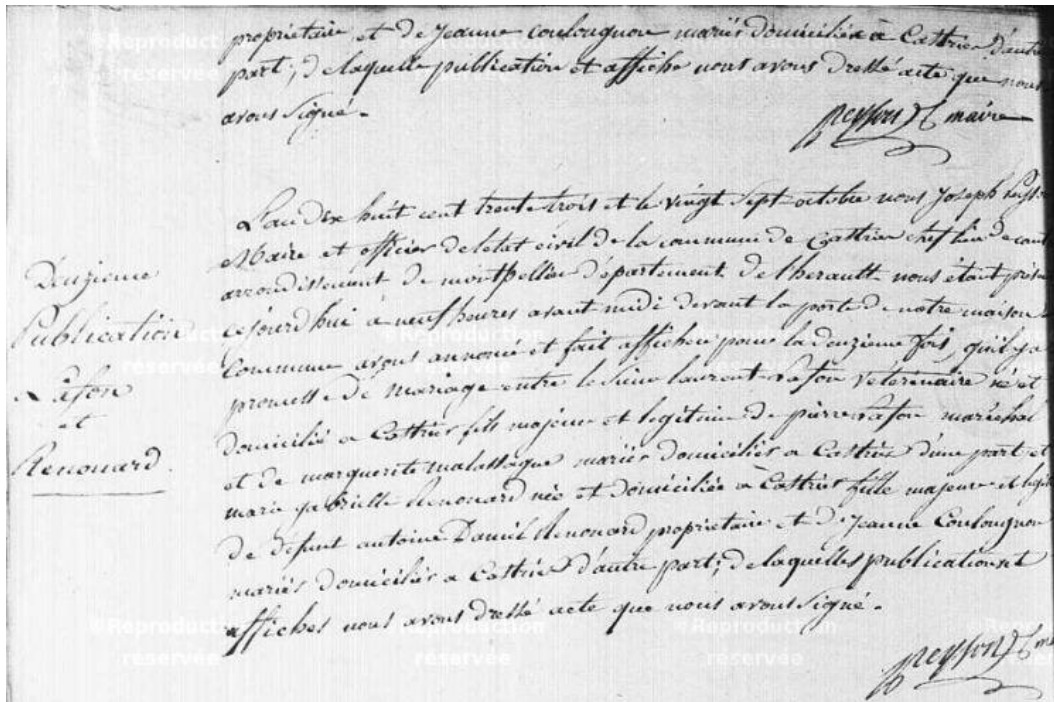 propriétaire, et de Jeanne coulougnon mariés domiciliés à Castries d'autre
part; de laquelle publication et affiche nous avons dressé acte que nous
avons signé.
maire
L'an dix huit cent trente trois et le vingt sept octobre nous Joseph
Maire et officier de l'état civil de la commune de Castries chef lieu de cant
arrondissement de montpellier département de l'herault nous étant
ce jourd'hui à neuf heures avant midi devant la porte de notre maison
Commune avons annoncé et fait afficher pour la deuzieme fois, qu'il y a
promesse de mariage entre le sieur laurent Lafon vétérinaire né et
domicilié a Castries fils majeur et legitime de pierre Lafon maréchal
et de marguerite malassagne mariés domiciliés a Castries d'une part et
marie gabrielle Renouard née et domiciliée à Castries fille majeure et legit
de défunt antoine Daniel Renouard propriétaire et de Jeanne Coulougnon
mariés domiciliés a Castries d'autre part; de laquelles publication et
affiches nous avons dressé acte que nous avons signé.
Deuzieme
Publication
Lafon
et
Renouard